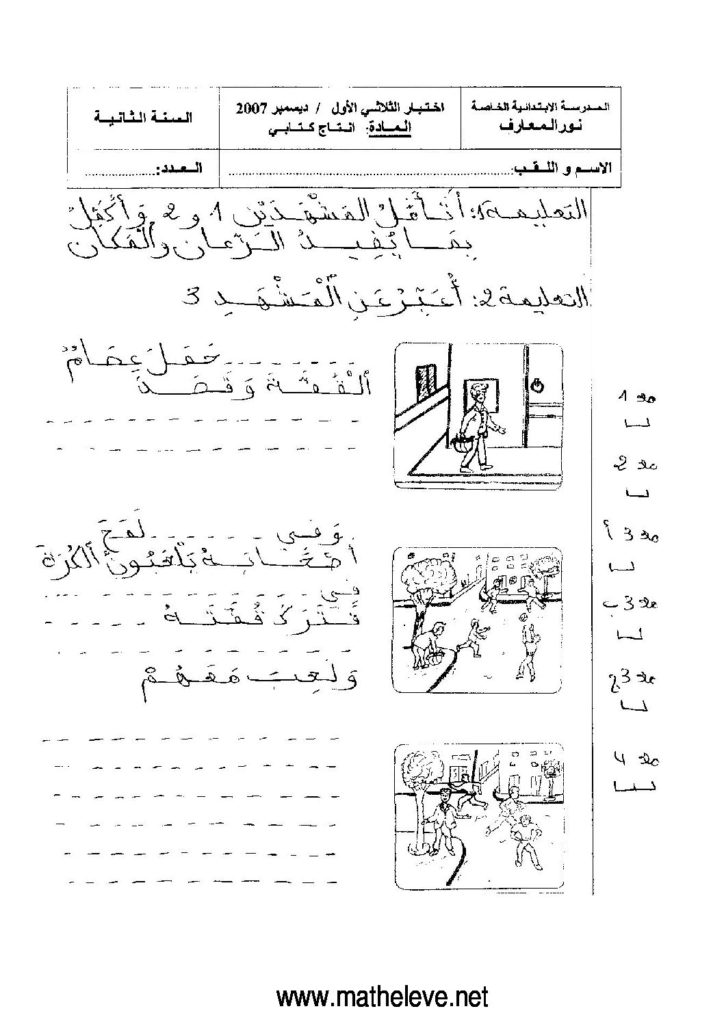 المدرسة الابتدائية الخاصة
نور المعارف
اختبار الثلاثي الأول / ديسمبر 2007
المادة: انتاج كتابي
السنة الثانية
الاسم و اللقب:..........................................
العدد:............
التعليمة 1: أَتَأَمَّلُ المَشْهَدَيْنِ 1 و 2 وَأُكَمِّلُ
بِمَا يُفِيدُ الزَّمان والْمَكان
التعليمة 2: أُعَبِّرُ عَنِ الْمَشْهَدِ 3
........ حَمَلَ عِصَامٌ
الْقُفَّةَ وَقَصَدَ
وَفِي ....... لَمَحَ
أَصْحَابَهُ يَلْعَبُونَ الْكُرَةَ
فِي .......
فَتَرَكَ قُفَّتَهُ .....
وَلَعِبَ مَعَهُمْ
مع 1
مع 2
مع 3 أ
مع 3 ب
مع 3 ج
مع 4
www.matheleve.net